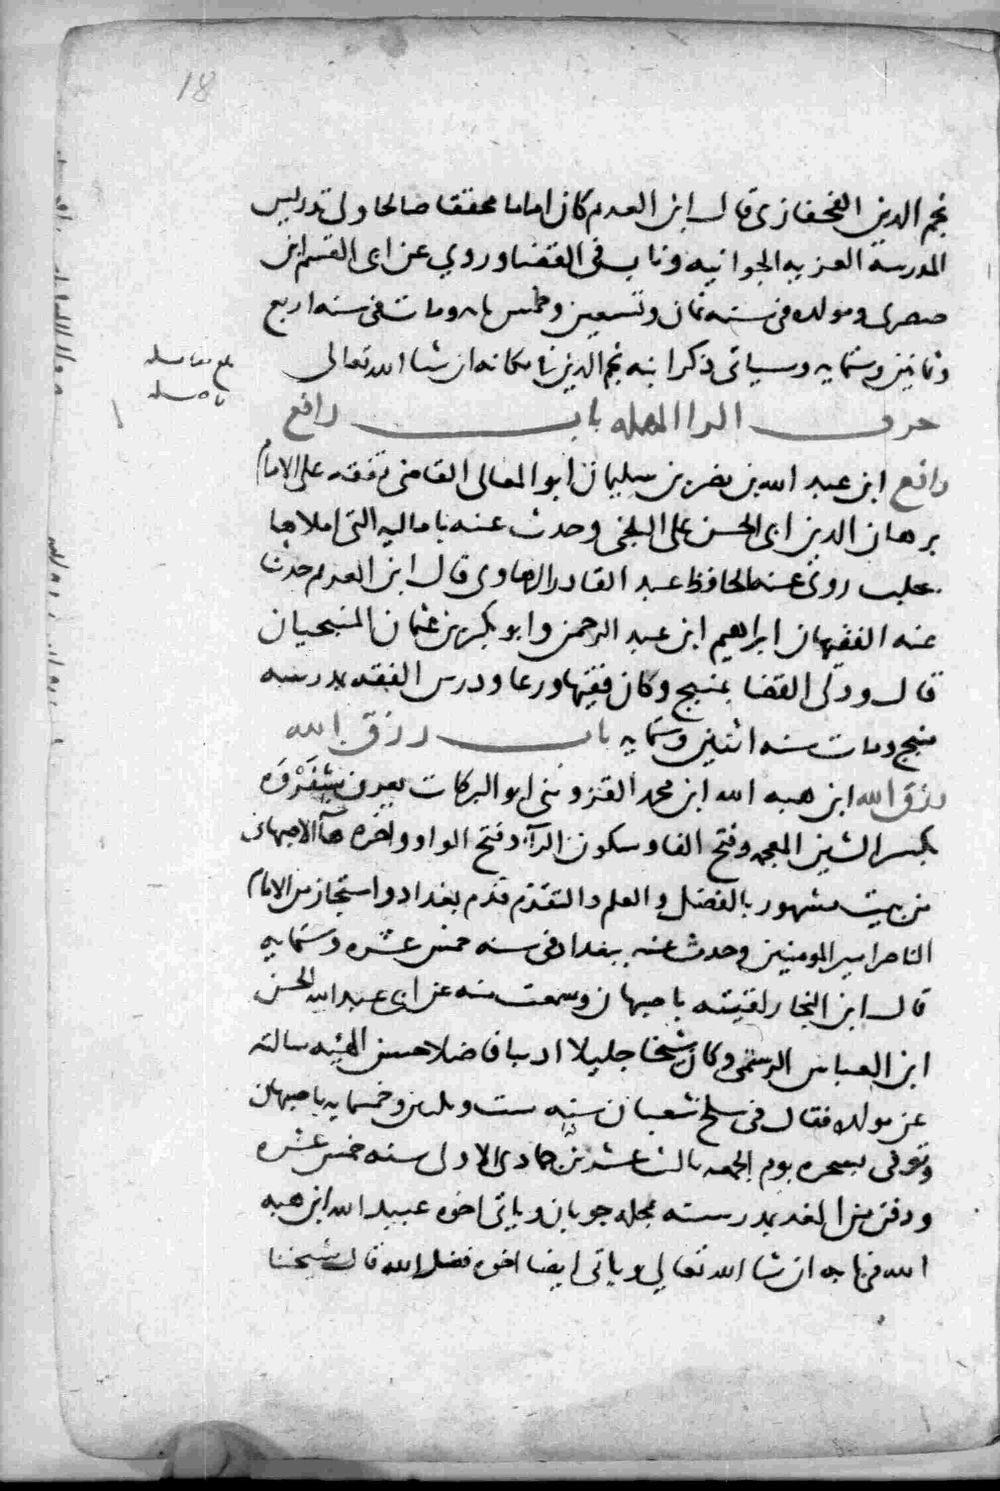 18
نجم الدين القحفازى قال ابن العديم كان اماما محققا صالحا ولى تدريس
المدرسة العزيه الجوانيه وناب فى القضا وروي عن ابى القسم ابن
صصرى ومولده فى سنه ثمان وتسعين وخمس ومات فى سنه اربع
وثمانين وستمايه وسياتى ذكر ابنه نجم الدين فى مكانه ان شا الله تعالى
حرف الرا المهمله باب رافع
رافع ابن عبد الله بن نصر بن سليمان ابو المعالى القاضى تفقه على الامام
برهان الدين ابى الحسن على البلخى وحدث عنه باماليه التى املاها
بحلب روى عنه الحافظ عبد القادر الرهاوى قال ابن العديم حدثنا
عنه الفقيهان ابراهيم ابن عبد الرحمن وابو بكر بن عثمان المنبجيان
قال وولى القضا بمنبج وكان فقيها ورعا ودرس الفقه بمدرسه
منبج ومات سنه اثنين وستمايه باب رزق الله
رزق الله ابن هبه الله ابن محمد القزوينى ابو البركات يعرف بشِفَرْوَه
بكسر الشين المعجمه وفتح الفا وسكون الرآء وفتح الواو واخره هآ الاصبهانى
من بيت مشهور بالفضل و العلم والتقدم قدم بغداد واستجاز من الامام
الناصر امير المومنين وحدث عنه ببغداد فى سنه خمس عشره وستمايه
قال ابن النجار لقيته باصبهان وسمعت منه عن ابى عبد الله الحسن
ابن العباس الرستمى وكان شيخا جليلا اديبا فاضلا حسن الهيئه سالته
عن مولده فقال فى سلخ شعبان سنه ست وخمسمايه باصبهان
وتوفى بسحره يوم الجمعه ثالث عشر من جمادى الاولى سنه خمس عشره
ودفن من الغد بمدرسته بمحله جوبان وياتى اخوه عبيد الله ابن هبه
الله فى بابه ان شا الله تعالى وياتى ايضا اخوه فضل الله قال شيخنا